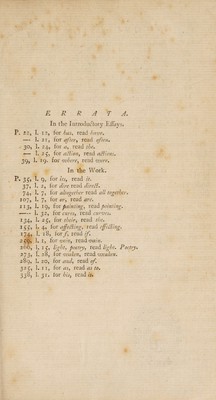 ERRATA.
In the Introductory Essays.
P. 21, l. 12, for has, read have.
— l. 21, for after, read often.
30, l. 24, for a, read the.
— l. 25, for action, read actions.
39, l. 19, for where, read were.
In the Work.
P. 35, l. 9, for its, read is.
37, l. 2, for dire read direct.
74, l. 7, for altogether read all together.
107, l. 7, for or, read are.
113, l. 19, for painting, read pointing.
—— l. 32, for cures, read curves.
134, l. 25, for their, read the.
155, l. 4, for affecting, read effecting.
174, l. 18, for f, read if.
259, l. 2, for vein, read vain.
266, l. 15, light, poetry, read light. Poetry.
273, l. 28, for tendon, read tendon.
289, l. 20, for and, read of.
325, l. 11, for as, read as to.
338, l. 31, for his, read its.